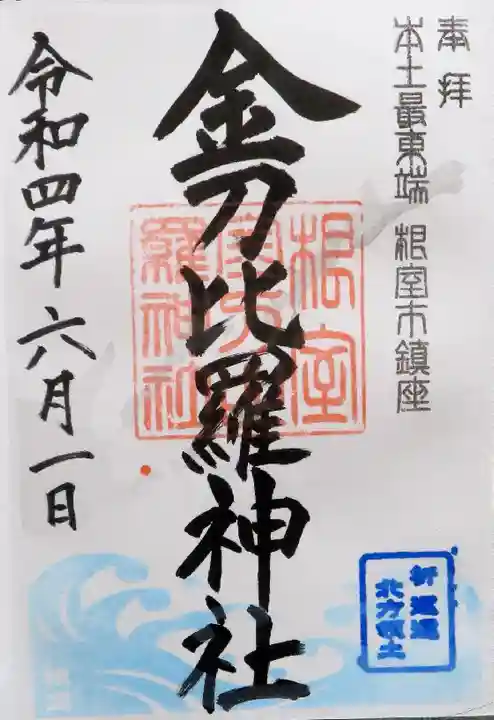 奉拝
本土最東端 根室市鎮座
金刀比羅神社
根室
羅神社
令和四年六月一日
祈返還
北方領土